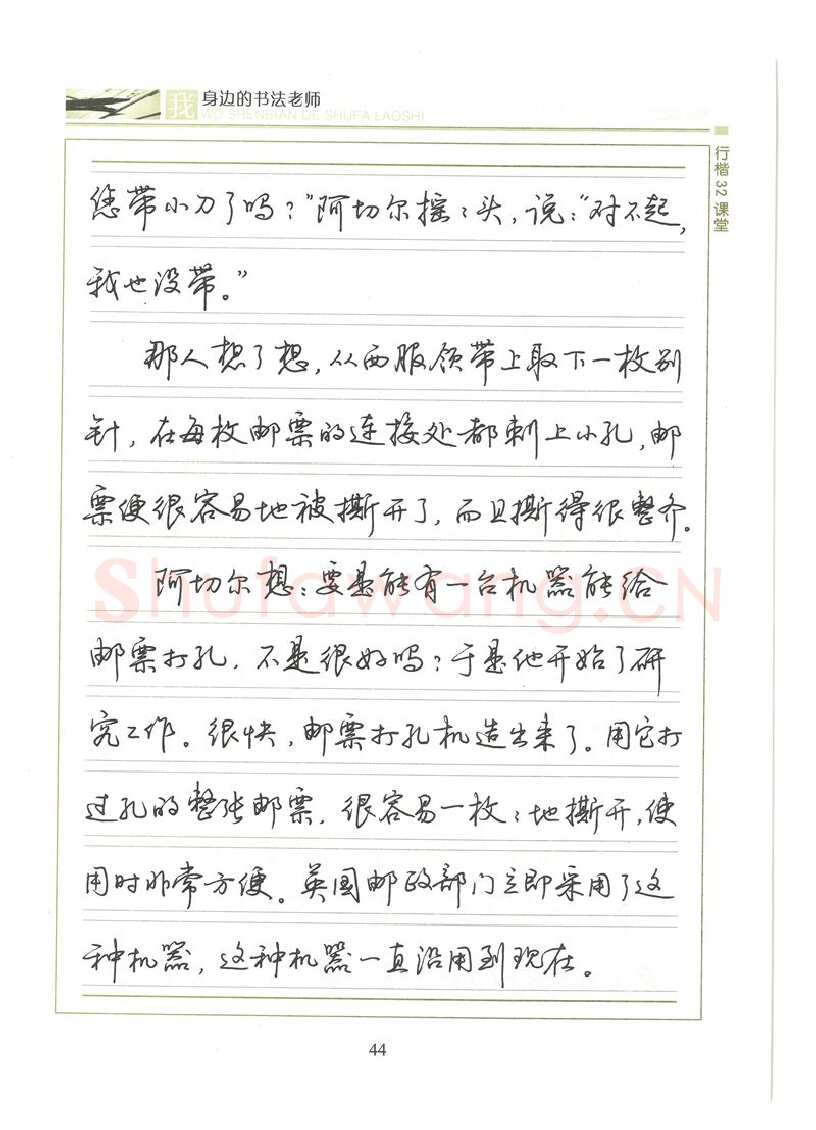 我 身边的书法老师
WO SHENBIAN DE SHUFA LAOSHI
行楷32课堂
您带小刀了吗？”阿切尔摇〻头，说：“对不起，
我也没带。”
那人想了想，从西服领带上取下一枚别
针，在每枚邮票的连接处都刺上小孔，邮
票便很容易地被撕开了，而且撕得很整齐。
阿切尔想：要是能有一台机器能给
邮票打孔，不是很好吗？于是他开始了研
究工作。很快，邮票打孔机造出来了。用它打
过孔的整张邮票，很容易一枚〻地撕开，使
用时非常方便。英国邮政部门立即采用了这
种机器，这种机器一直沿用到现在。
Shufawang.CN
44